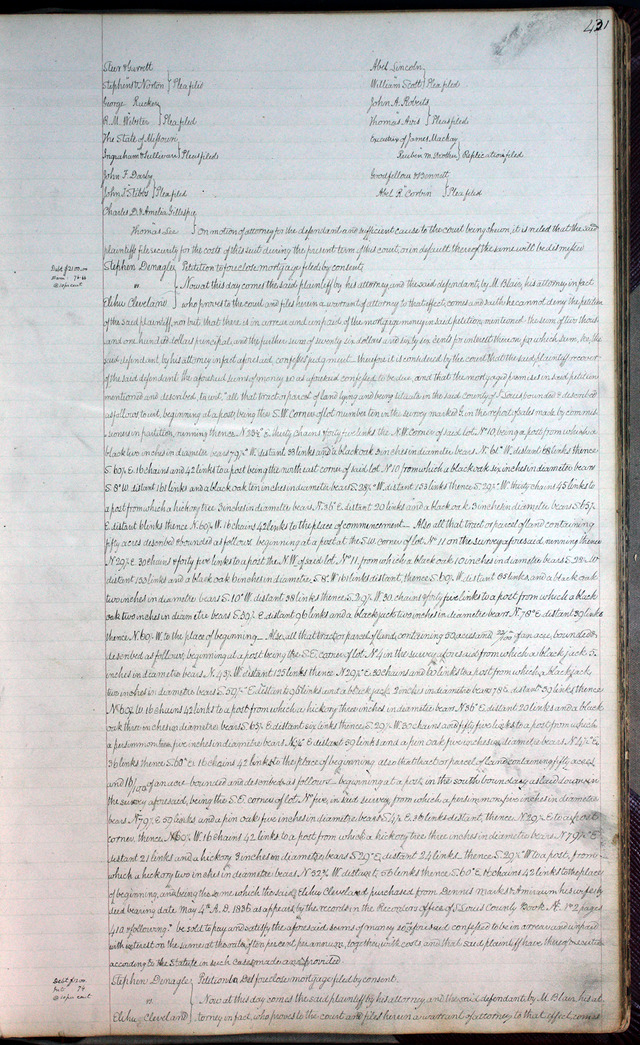 431
Steer & Garrett
Stephens & Norton } Plea filed
George Ruckey
R. M. Webster } Plea filed
The State of Missouri
Ingraham & Sullivan } Pleas filed
John F. Darby
John S. Stibbs } Plea filed
Charles D. & Amelia Gillespie
Abel Lincoln
William Scott } Plea filed
John A. Roberts
Thomas Avis } Pleas filed
Executrix of James Mackay
Reuben M. } Replication filed
& Bennett
Abel R. Corbin } Plea filed
Thomas Lee } On motion of attorney for the defendant and sufficient cause to the court being shewn, it is ruled that the said
plaintiff file security for the costs of this suit during the present term of this court, or in default thereof the same will be dismissed
Debt $2100.00
Dam 76.66
@ 10 per cent
Stephen Denagle } Petition to foreclose mortgage filed by consent;
vs } Now at this day comes the said plaintiff by his attorney and the said defendant, by M. Blair, his attorney in fact
Elihu Cleveland } who proves to the court and files herein a warrant of attorney to that effect, comes and saith he cannot deny the petition
of the said plaintiff, nor but that there is in arrear and unpaid of the mortgage money in said petition, mentioned the sum of two thous-
and one hundred dollars principal, and the further sum of seventy six dollars and sixty six cents for interest thereon, for which sum, he, the
said defendant by his attorney in fact aforesaid, confesses judgment therefore it is considered by the court that the said plaintiff recover
of the said defendant the aforesaid sums of money so as aforesaid confessed to be due, and that the mortgaged premises in said petition
mentioned and described, to wit, "all that tract or parcel of land lying and being situate in the said county of S. Louis bounded & described
as follows to wit, beginning at a post, being the S. W. Corner of lot number ten in the survey marked in the report of sales made by commis-
sioners in partition, running thence N. E. thirty chains & forty-five links the N. W. corner of said lot No. 10, being a post from which a
black two inches in diameter bears W. distant 38 links and a black oak 3 inches in diameter bears N. W. distant 68 links thence
S. 60½ E. 16 chains and 42 links to a post being the north east corner of said lot No. 10 from which a black oak six inches in diameter bears
S. 8° W. distant 161 links and a black oak ten inches in diameter bears S. W. distant 133 links thence S. 29½° W. thirty chains 45 links to
a post from which a hickory tree 3 inches in diameter bears N. 36° E. distant 20 links and a black oak 3 inches in diameter bears S. 65½
E. distant 6 links thence N. 60½ W. 16 chains 42 links to the place of commencement. Also all that tract or parcel of land containing
fifty acres described & bounded as follows beginning at a post at the S. W. corner of lot No. 11 on the survey aforesaid running thence
N. 29½ E. 30 chains & forty five links to a post the N. W. of said lot No. 11, from which a black oak 10 inches in diameter bears S. W.
distant 133 links and a black oak 6 inches in diameter, S. 8° W. 161 links distant, thence S. 60½ distant links, and a black oak
two inches in diameter bears S. 10° W. distant 38 links thence S. 29½ W. 30 chains & forty five links to a post from which a black
oak two inches in diameter bears S. 59½ E. distant 96 links and a black jack two inches in diameter bears N. 78° E. distant 39 links
thence N. 60½ W. to the place of beginning. Also, all that tract or parcel of land, containing 50 acres and /100 of an acre, bounded &
described as follows, beginning at a post being the S. E. corner of lot No. 4 in the survey aforesaid from which a black jack 5
inches in diameter bears N. 43½ W. distant 125 links thence N. 29½ E. 30 chains and 60 links to a post from which a black jack
two inches in diameter bears S. 59½° E. distant 96 links and a black jack 2 inches in diameter bears 78 E. distant 39 links thence
N. 60½ W. 16 chains 42 links to a post from which a hickory three inches in diameter bears N. 36° E. distant 20 links and a black
oak three inches in diameter bears S. 65½ E. distant six links thence S. 29½ W. 30 chains and fifty five links to a post from which
a persimmon tree five inches in diameter bears N. E. distant 39 links and a pin oak five inches in diameter bears N. E.
36 links thence S. 60° E. 16 chains 42 links to the place of beginning also that tract or parcel of land containing fifty acres
and 16/100 of an acre bounded and described as follows beginning at a post, in the south boundary as laid down in
the survey aforesaid, being the S. E. corner of lot No. five, in said survey, from which a persimmon, five inches in diameter
bears N. 79½ E. 39 links and a pin oak five inches in diameter bears S. E. 36 links distant, thence N. 29½ E. to a post
corner, thence N. 60½ W. 16 chains 42 links to a post from which a hickory tree three inches in diameter bears N. 79½ E
distant 21 links and a hickory 2 inches in diameter bears S. 49° E. distant 24 links thence S. 29½ W. to a post, from
which a hickory two inches in diameter bears N. 32½ W. distant, 56 links thence S. 60° E. 16 chains 42 links to the place
of beginning, and being the same which the said Elihu Cleveland purchased from Dennis Marks & Amiram his wife by
deed bearing date May 4th A. D. 1836 as appears by the records in the Recorders office of S. Louis County Book pages
412 & following" be sold to pay and satisfy the aforesaid sums of money so aforesaid confessed to be in arrear and unpaid
with interest on the same at the rate of ten per cent per annum, together with costs and that said plaintiff have thereof execution
according to the Statute in such cases made and provided.
Debt $700
Int 24
@ 10 per cent
Stephen Denagle } Petition to foreclose mortgage filed by consent.
vs. } Now at this day comes the said plaintiff by his attorney and the said defendant, by M. Blair, his at-
Elihu Cleveland } torney in fact, who proves to the court and files herein a warrant of attorney to that effect, comes